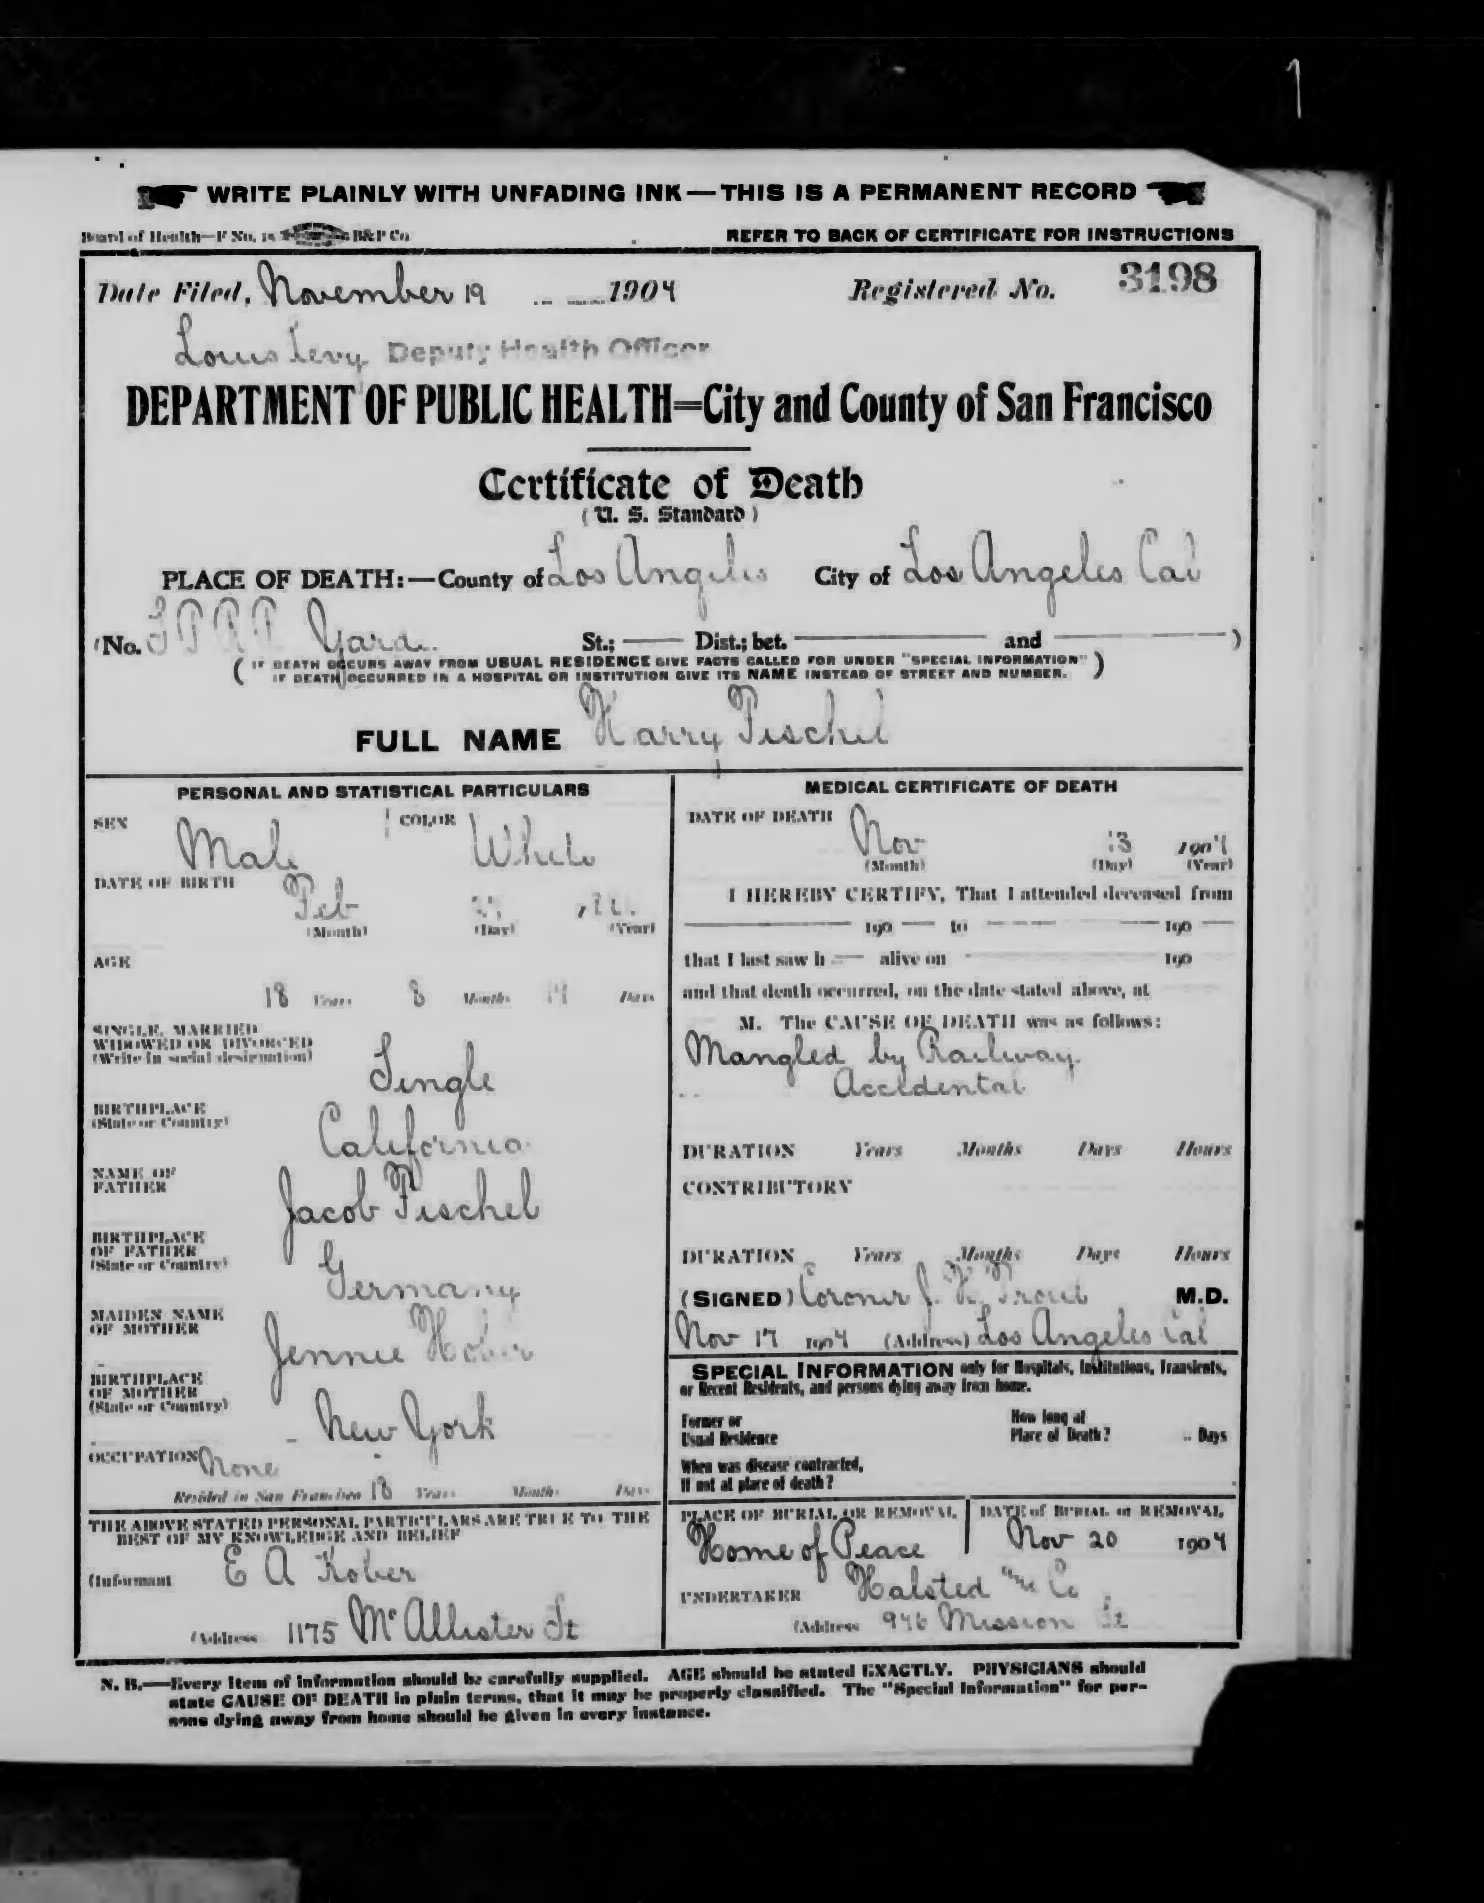 1
WRITE PLAINLY WITH UNFADING INK — THIS IS A PERMANENT RECORD
Board of Health—F No. 18 B&P Co
REFER TO BACK OF CERTIFICATE FOR INSTRUCTIONS
Date Filed, November 19 1904 Registered No. 3198
Louis Levy Deputy Health Officer
DEPARTMENT OF PUBLIC HEALTH=City and County of San Francisco
Certificate of Death
(U. S. Standard)
PLACE OF DEATH:—County of Los Angeles City of Los Angeles Cal
(No. S P R R Yard St.; Dist.; bet. and )
( IF DEATH OCCURS AWAY FROM USUAL RESIDENCE GIVE FACTS CALLED FOR UNDER "SPECIAL INFORMATION" )
IF DEATH OCCURRED IN A HOSPITAL OR INSTITUTION GIVE ITS NAME INSTEAD OF STREET AND NUMBER.
FULL NAME Harry Fischel
PERSONAL AND STATISTICAL PARTICULARS
SEX Male COLOR White
DATE OF BIRTH Feb
(Month) (Day) (Year)
AGE
18 Years 8 Months Days
SINGLE, MARRIED
WIDOWED OR DIVORCED
(Write in social designation)
Single
BIRTHPLACE
(State or Country)
California
NAME OF
FATHER
Jacob Fischel
BIRTHPLACE
OF FATHER
(State or Country)
Germany
MAIDEN NAME
OF MOTHER
Jennie Kober
BIRTHPLACE
OF MOTHER
(State or Country)
New York
OCCUPATION None
Resided in San Francisco 18 Years Months Days
THE ABOVE STATED PERSONAL PARTICULARS ARE TRUE TO THE
BEST OF MY KNOWLEDGE AND BELIEF
(Informant E A Kober
(Address 1175 McAllister St
MEDICAL CERTIFICATE OF DEATH
DATE OF DEATH Nov 13 1904
(Month) (Day) (Year)
I HEREBY CERTIFY, That I attended deceased from
190 to 190
that I last saw h alive on 190
and that death occurred, on the date stated above, at
M. The CAUSE OF DEATH was as follows:
Mangled by Railway
Accidental
DURATION Years Months Days Hours
CONTRIBUTORY
DURATION Years Months Days Hours
(SIGNED) Coroner J. H. Trout M.D.
Nov 17 1904 (Address) Los Angeles Cal
SPECIAL INFORMATION only for Hospitals, Institutions, Transients,
or Recent Residents, and persons dying away from home.
Former or
Usual Residence
How long at
Place of Death? Days
When was disease contracted,
If not at place of death?
PLACE OF BURIAL OR REMOVAL
Home of Peace
DATE of BURIAL or REMOVAL
Nov 20 1904
UNDERTAKER Halsted & Co
(Address 946 Mission St
N. B.—Every item of information should be carefully supplied. AGE should be stated EXACTLY. PHYSICIANS should
state CAUSE OF DEATH in plain terms, that it may be properly classified. The "Special Information" for per-
sons dying away from home should be given in every instance.